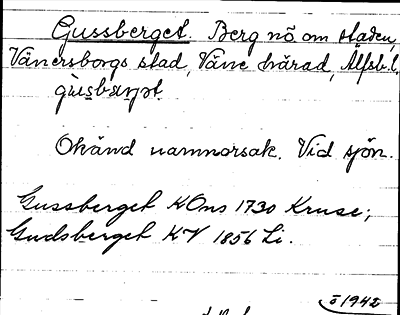 Gussberget. Berg nö om staden,
Vänersborgs stad, Väne härad, Älfsb. l.
Okänd namnorsak. Vid sjön.
Gussberget KOns 1730 Kruse;
Gudsberget KV 1856 Li.
ö 1942